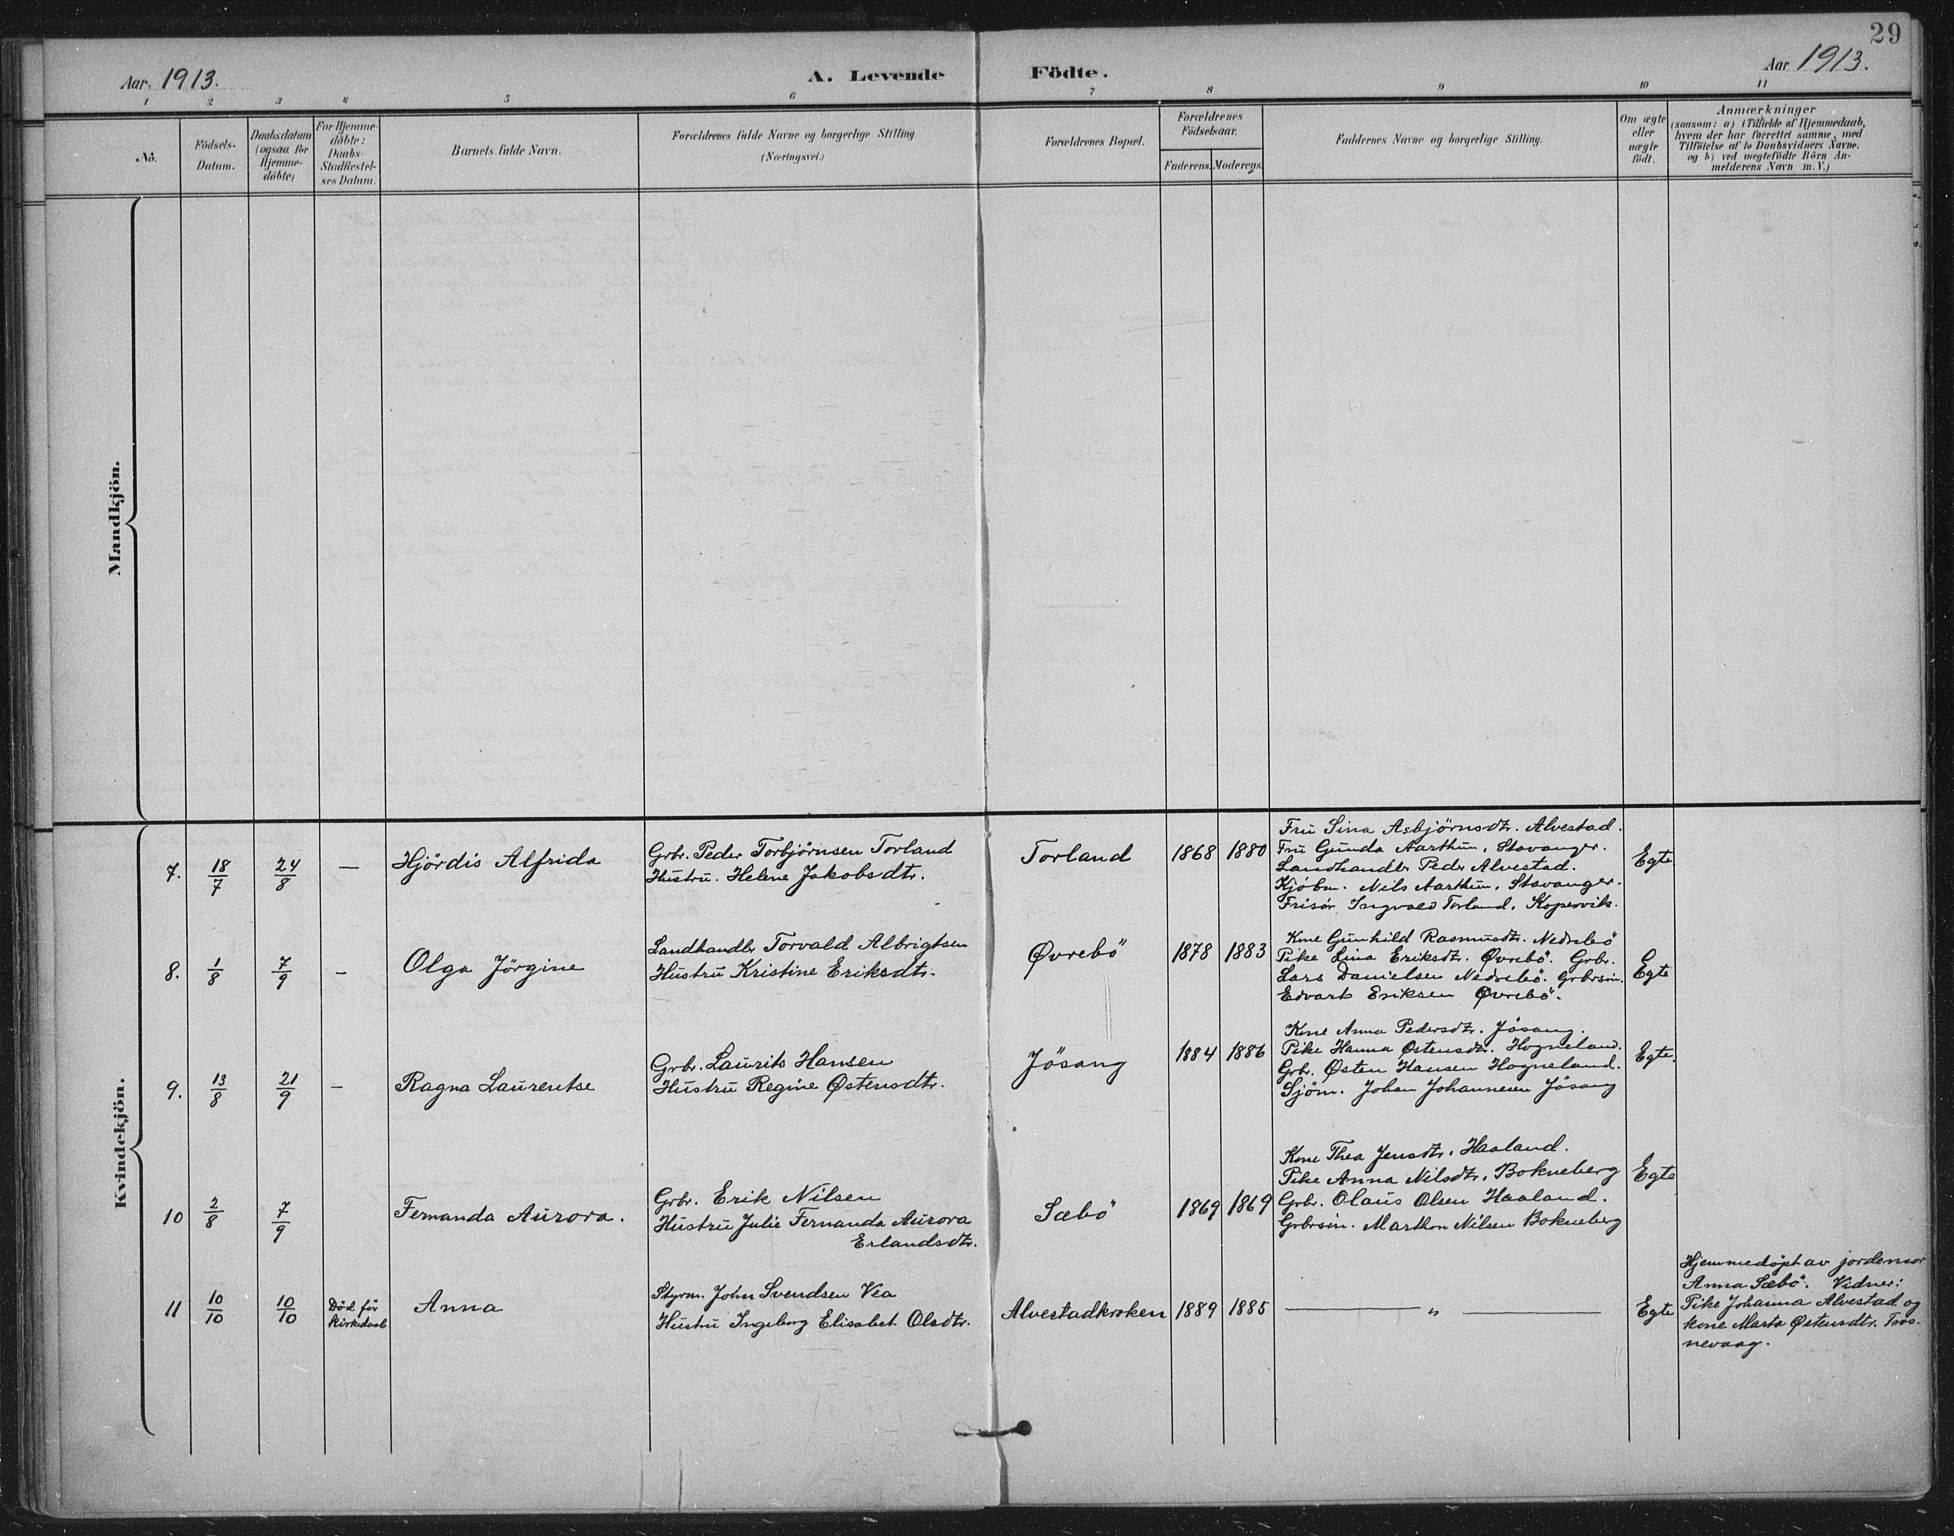 29
Aar 1913.
A. Levende Födte.
Aar 1913.
1 2 3 4 5 6 7 8 9 10 11
No.
Födsels-
Datum.
Daabsdatum
(ogsaa for
Hjemme-
döbte)
For Hjemme-
döbte:
Daabs-
Stadfæstel-
ses Datum.
Barnets fulde Navn.
Forældrenes fulde Navne og borgerlige Stilling
(Næringsvei.)
Forældrenes Bopæl.
Forældrenes
Födselsaar.
Faderens. Moderens.
Faddernes Navne og borgerlige Stilling.
Om ægte
eller
uægte
födt.
Anmærkninger
(saasom: a) i Tilfælde af Hjemmedaab,
hvem der har forrettet samme, med
Tilföielse af to Daabsvidners Navne.
og b) ved uegtefödte Börn An-
melderens Navn m. V.)
Mandkjön.
Kvindekjön.
7.
18/7
24/8
—
Hjördis Alfrida
Grbr. Peder Torbjørnsen Torland
Hustru. Helene Jakobsdtr.
Torland
1868 1880
Fru Sina Asbjørnsdtr. Alvestad.
Fru Gunda Aarthun, Stavanger.
Landhandler Peder Alvestad.
Kjøbm. Nils Aarthun, Stavanger.
Frisør Ingvald Torland, Kopervik.
Egte
8.
1/8
7/9
–
Olga Jörgine
Landhandler Torvald Albrigtsen
Hustru Kristine Eriksdtr.
Øvrebö
1878 1883
Kone Gunhild Rasmusdtr. Nedrebö
Pike Lina Eriksdtr. Øvrebö. Grbr.
Lars Danielsen Nedrebö. Grbrsön.
Edvart Eriksen Øvrebö.
Egte
9.
13/8
21/9
–
Ragna Laurentse
Grbr. Laurits Hansen
Hustru Regine Østensdtr.
Jösang
1884 1886
Kone Anna Pedersdtr. Jösang.
Pike Hanna Østensdtr. Hogneland.
Grbr. Østen Hansen Hogneland.
Sjöm. Johan Johannesen Jösang
Egte.
10
2/8
7/9
Fernanda Aurora.
Grbr. Erik Nilsen
Hustru Julie Fernanda Aurora
Erlandsdtr.
Sæbö
1869 1869
Kone Thea Jensdtr. Haaland.
Pike Anna Nilsdtr. Bokneberg
Grbr. Olaus Olsen Haaland.
Grbrsön. Marthon Nilsen Bokneberg
Egte
11
10/10
10/10
Död för
kirkedaab
Anna
Styrm. John Svendsen Vea
Hustru Ingeborg Elisabet Olsdtr.
Alvestadkroken
1889 1885
— „ —
Egte
Hjemmedöpt av jordemor
Anna Sæbö. Vidner:
Pike Johanna Alvestad og
kone Marta Østensdtr. Tros-
nevaag.